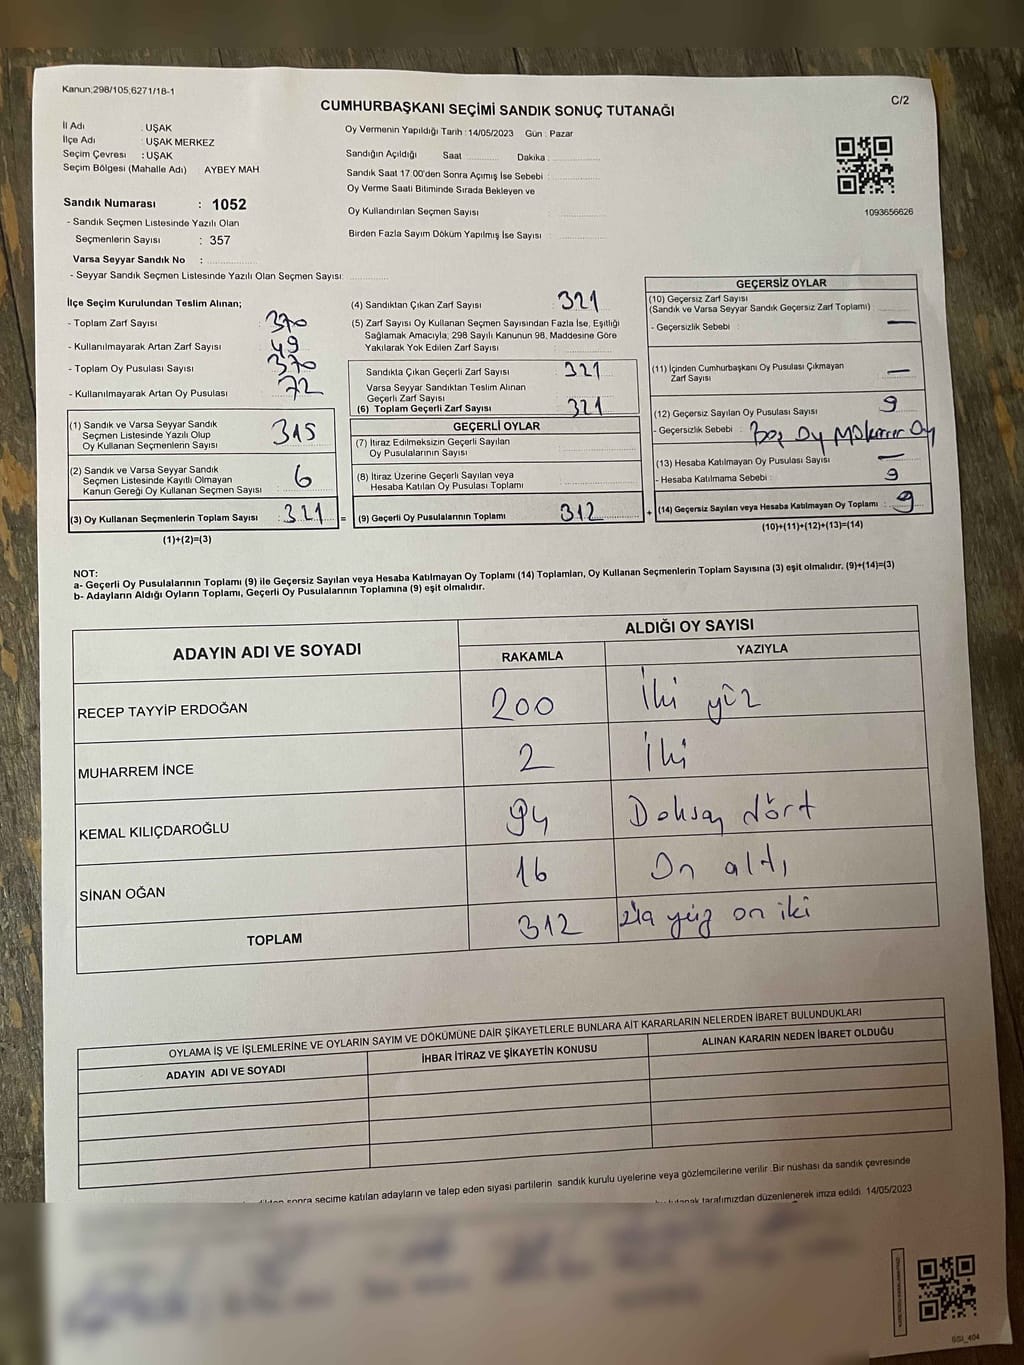 Kanun;298/105,6271/18-1
C/2
CUMHURBAŞKANI SEÇİMİ SANDIK SONUÇ TUTANAĞI
İl Adı : UŞAK
İlçe Adı : UŞAK MERKEZ
Seçim Çevresi : UŞAK
Seçim Bölgesi (Mahalle Adı) AYBEY MAH
Oy Vermenin Yapıldığı Tarih : 14/05/2023 Gün : Pazar
Sandığın Açıldığı Saat Dakika :
Sandık Saat 17.00'den Sonra Açımış İse Sebebi :
Oy Verme Saati Bitiminde Sırada Bekleyen ve
Oy Kullandırılan Seçmen Sayısı
Birden Fazla Sayım Döküm Yapılmış İse Sayısı
1093656626
Sandık Numarası : 1052
- Sandık Seçmen Listesinde Yazılı Olan
Seçmenlerin Sayısı : 357
Varsa Seyyar Sandık No :
- Seyyar Sandık Seçmen Listesinde Yazılı Olan Seçmen Sayısı:
İlçe Seçim Kurulundan Teslim Alınan;
- Toplam Zarf Sayısı : 370
- Kullanılmayarak Artan Zarf Sayısı : 49
- Toplam Oy Pusulası Sayısı : 370
- Kullanılmayarak Artan Oy Pusulası : 72
(1) Sandık ve Varsa Seyyar Sandık
Seçmen Listesinde Yazılı Olup
Oy Kullanan Seçmenlerin Sayısı 315
(2) Sandık ve Varsa Seyyar Sandık
Seçmen Listesinde Kayıtlı Olmayan
Kanun Gereği Oy Kullanan Seçmen Sayısı 6
(3) Oy Kullanan Seçmenlerin Toplam Sayısı : 321
(1)+(2)=(3)
(4) Sandıktan Çıkan Zarf Sayısı 321
(5) Zarf Sayısı Oy Kullanan Seçmen Sayısından Fazla İse, Eşitliği
Sağlamak Amacıyla, 298 Sayılı Kanunun 98. Maddesine Göre
Yakılarak Yok Edilen Zarf Sayısı
Sandıkla Çıkan Geçerli Zarf Sayısı 321
Varsa Seyyar Sandıktan Teslim Alınan
Geçerli Zarf Sayısı
(6) Toplam Geçerli Zarf Sayısı 321
GEÇERLİ OYLAR
(7) İtiraz Edilmeksizin Geçerli Sayılan
Oy Pusulalarının Sayısı
(8) İtiraz Üzerine Geçerli Sayılan veya
Hesaba Katılan Oy Pusulası Toplamı
= (9) Geçerli Oy Pusulalarının Toplamı 312 +
GEÇERSİZ OYLAR
(10) Geçersiz Zarf Sayısı
(Sandık ve Varsa Seyyar Sandık Geçersiz Zarf Toplamı)
- Geçersizlik Sebebi : —
(11) İçinden Cumhurbaşkanı Oy Pusulası Çıkmayan
Zarf Sayısı —
(12) Geçersiz Sayılan Oy Pusulası Sayısı 9
- Geçersizlik Sebebi : Boş Oy Mükerrer Oy
(13) Hesaba Katılmayan Oy Pusulası Sayısı —
- Hesaba Katılmama Sebebi : 9
(14) Geçersiz Sayılan veya Hesaba Katılmayan Oy Toplamı : 9
(10)+(11)+(12)+(13)=(14)
NOT:
a- Geçerli Oy Pusulalarının Toplamı (9) ile Geçersiz Sayılan veya Hesaba Katılmayan Oy Toplamı (14) Toplamları, Oy Kullanan Seçmenlerin Toplam Sayısına (3) eşit olmalıdır. (9)+(14)=(3)
b- Adayların Aldığı Oyların Toplamı, Geçerli Oy Pusulalarının Toplamına (9) eşit olmalıdır.
ADAYIN ADI VE SOYADI
ALDIĞI OY SAYISI
RAKAMLA YAZIYLA
RECEP TAYYİP ERDOĞAN 200 İki yüz
MUHARREM İNCE 2 İki
KEMAL KILIÇDAROĞLU 94 Doksan dört
SİNAN OĞAN 16 On altı
TOPLAM 312 yüz on iki
OYLAMA İŞ VE İŞLEMLERİNE VE OYLARIN SAYIM VE DÖKÜMÜNE DAİR ŞİKAYETLERLE BUNLARA AİT KARARLARIN NELERDEN İBARET BULUNDUKLARI
ADAYIN ADI VE SOYADI İHBAR İTİRAZ VE ŞİKAYETİN KONUSU ALINAN KARARIN NEDEN İBARET OLDUĞU
sonra seçime katılan adayların ve talep eden siyasi partilerin sandık kurulu üyelerine veya gözlemcilerine verilir. Bir nüshası da sandık çevresinde
tutanak tarafımızdan düzenlenerek imza edildi. 14/05/2023
SSI_404